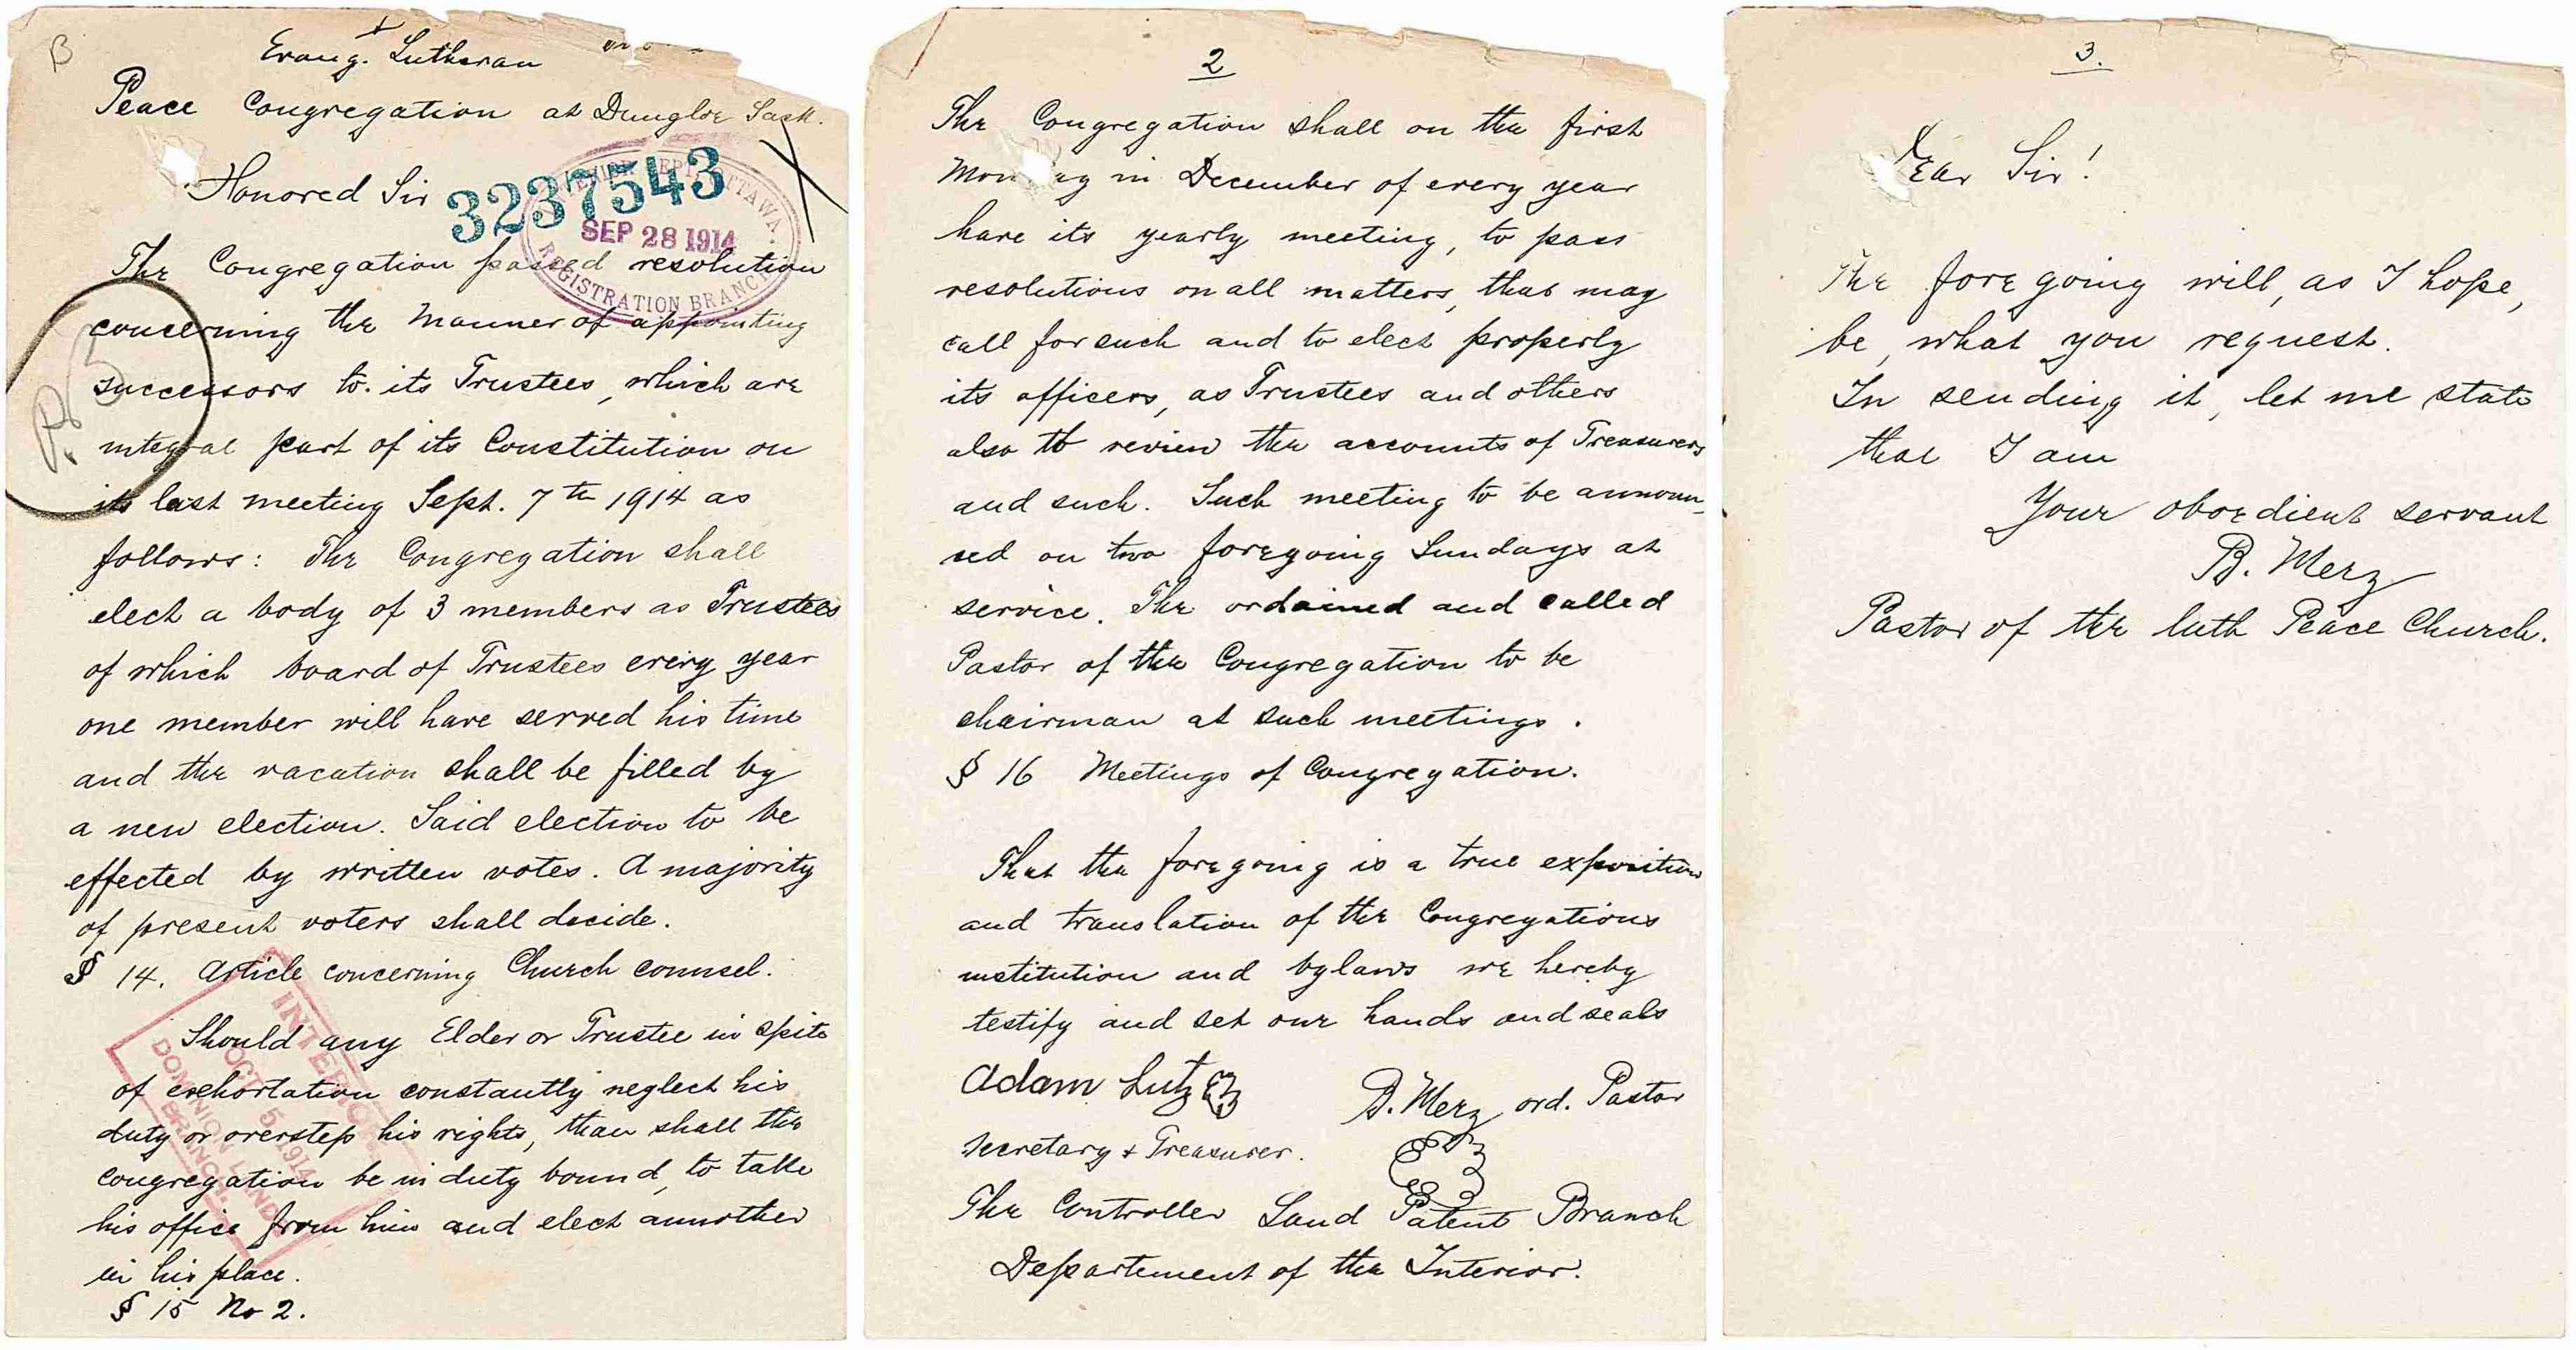 B
Evang. Lutheran
Peace Congregation at Dungloe Sask.
Honored Sir
3237543
OTTAWA
SEP 28 1914
REGISTRATION BRANCH
The Congregation passed resolution
concerning the Manner of appointing
successors to its Trustees, which are
integral part of its Constitution on
its last meeting Sept. 7th 1914 as
follows: The Congregation shall
elect a body of 3 members as Trustees
of which board of Trustees every year
one member will have served his time
and the vacation shall be filled by
a new election. Said election to be
effected by written votes. A majority
of present voters shall decide.
§ 14. Article concerning Church counsel.
Should any Elder or Trustee in spite
of exhortation constantly neglect his
duty or overstep his rights, than shall the
congregation be in duty bound, to take
his office from him and elect annother
in his place.
§ 15 No 2.
INTERIOR
OCT 5 1914
DOMINION LANDS
BRANCH
2
The Congregation shall on the first
Mon ay in December of every year
have its yearly meeting, to pass
resolutions on all matters, that may
call for such and to elect properly
its officers, as Trustees and others
also to review the accounts of Treasurers
and such. Such meeting to be announ-
ced on two foregoing Sundays at
service. The ordained and called
Pastor of the Congregation to be
chairman at such meetings.
§ 16 Meetings of Congregation.
That the foregoing is a true exposition
and translation of the Congregations
institution and bylaws we hereby
testify and set our hands and seals
Adam Lutz
B. Merz ord. Pastor
Secretary + Treasurer.
The Controller Land Patent Branch
Departement of the Interior.
3.
Dear Sir!
The foregoing will, as I hope,
be, what you request.
In sending it, let me state
that I am
Your oboedient servant
B. Merz
Pastor of the luth Peace Church.